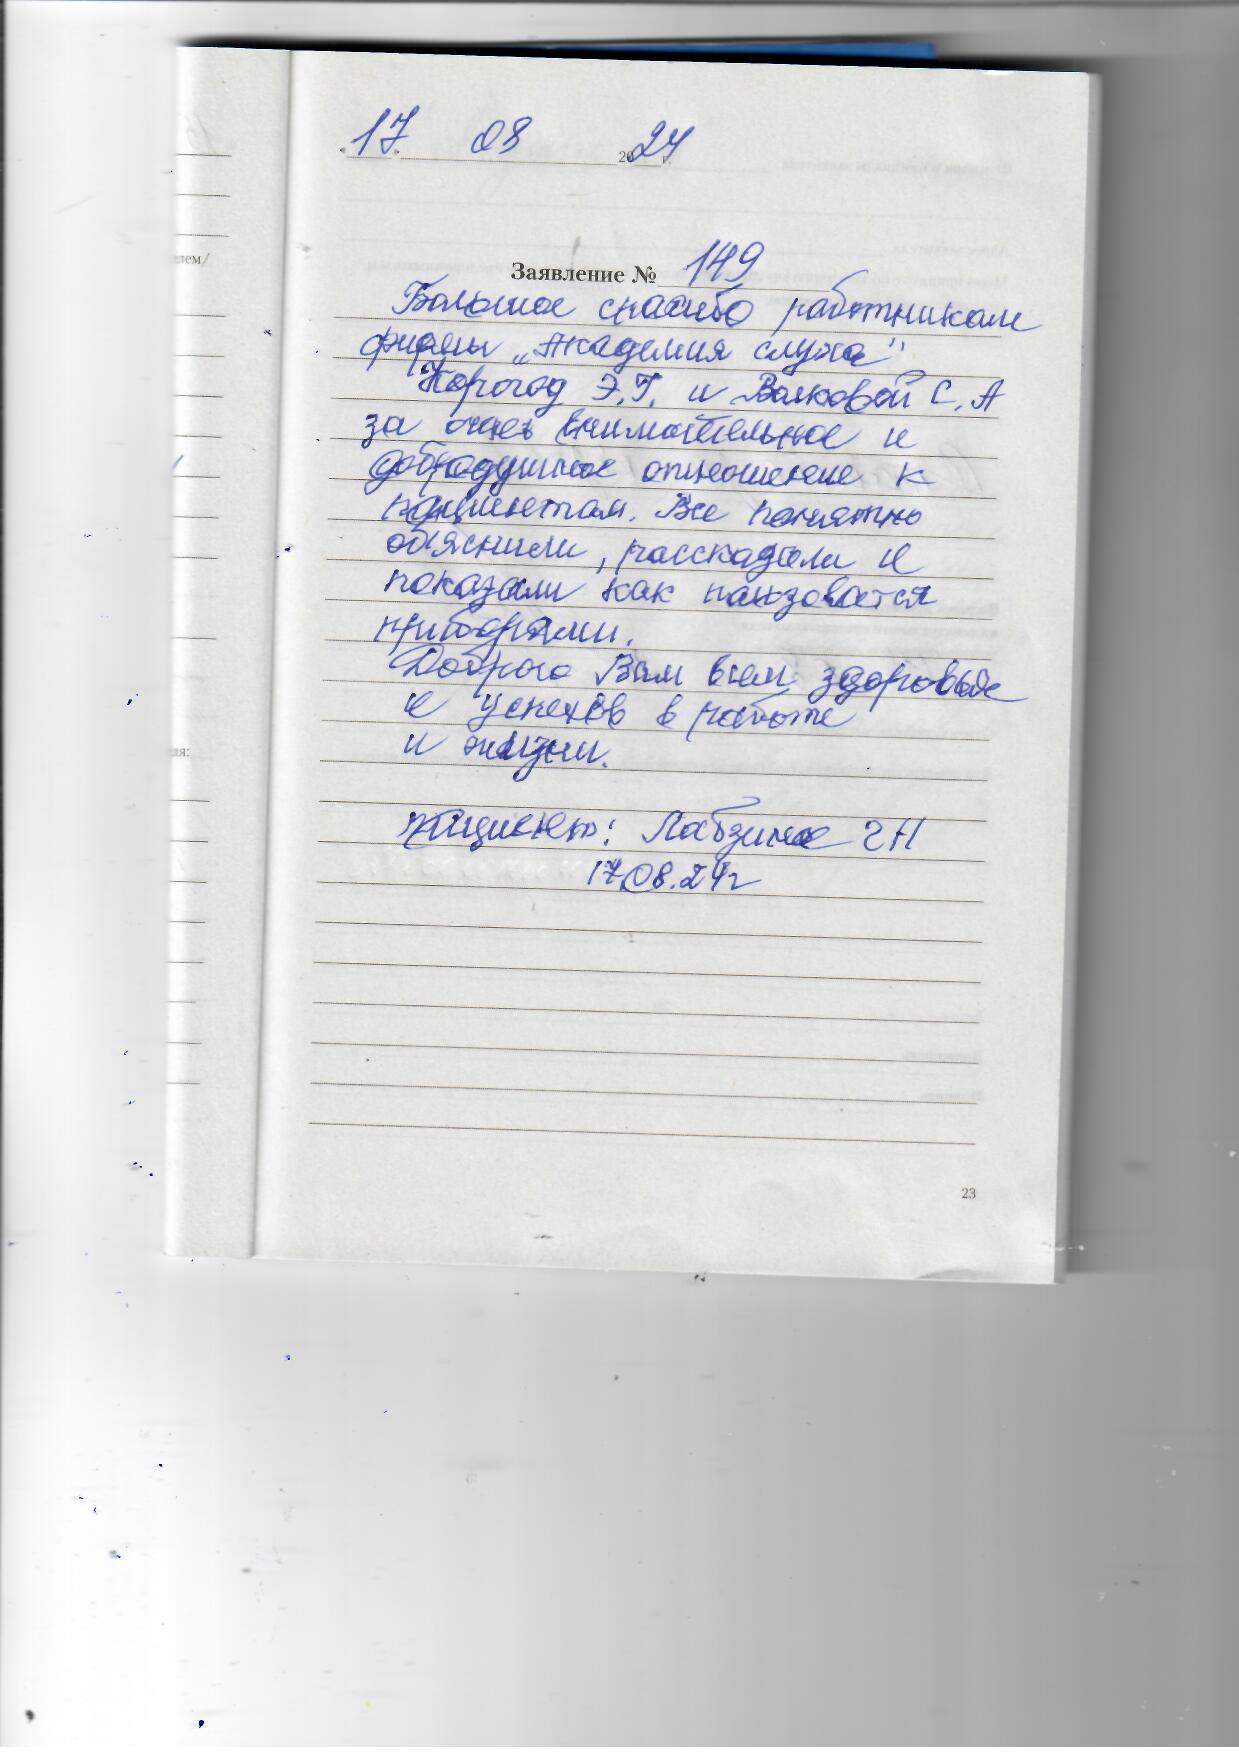 17 08 2024 г.
елем/
Заявление № 149
Большое спасибо работникам
фирмы „Академия слуха"
Э.Г. и Волковой С.А
за очень внимательное и
добродушное отношение к
пациентам. Все понятно
обяснили, рассказали и
показали как
приборами.
Доброго Вам всем здоровья
и успехов в работе
и жизни.
ля:
пациент: Лабзина ГН
17.08.24г
23